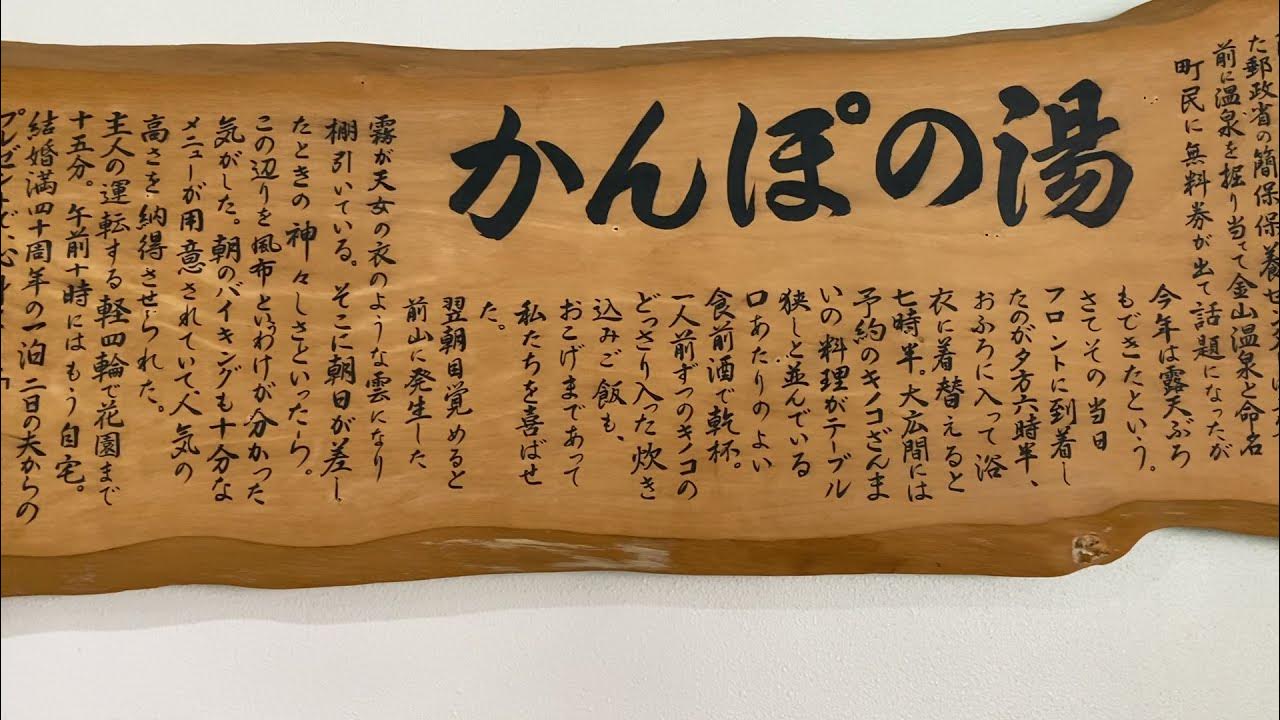 かんぽの湯
た郵政省の簡保保養セ
前に温泉を掘り当てて金山温泉と命名
町民に無料券が出て話題になったが
今年は露天ぶろ
もできたという。
さてその当日
フロントに到着し
たのが夕方六時半、
おふろに入って浴
衣に着替えると
七時半。大広間には
予約のキノコざんま
いの料理がテーブル
狭しと並んでいる
口あたりのよい
食前酒で乾杯。
一人前ずつのキノコの
どっさり入った炊き
込みご飯も、
おこげまであって
私たちを喜ばせ
た。
翌朝目覚めると
前山に発生した
霧が天女の衣のような雲になり
棚引いている。そこに朝日が差し
たときの神々しさといったら。
この辺りを風布といわけが分かった
気がした。朝のバイキングも十分な
メニューが用意されていて、人気の
高さを納得させられた。
主人の運転する軽四輪で花園まで
十五分。午前十時にはもう自宅。
結婚満四十周年の一泊二日の夫からの
プレゼントで、心